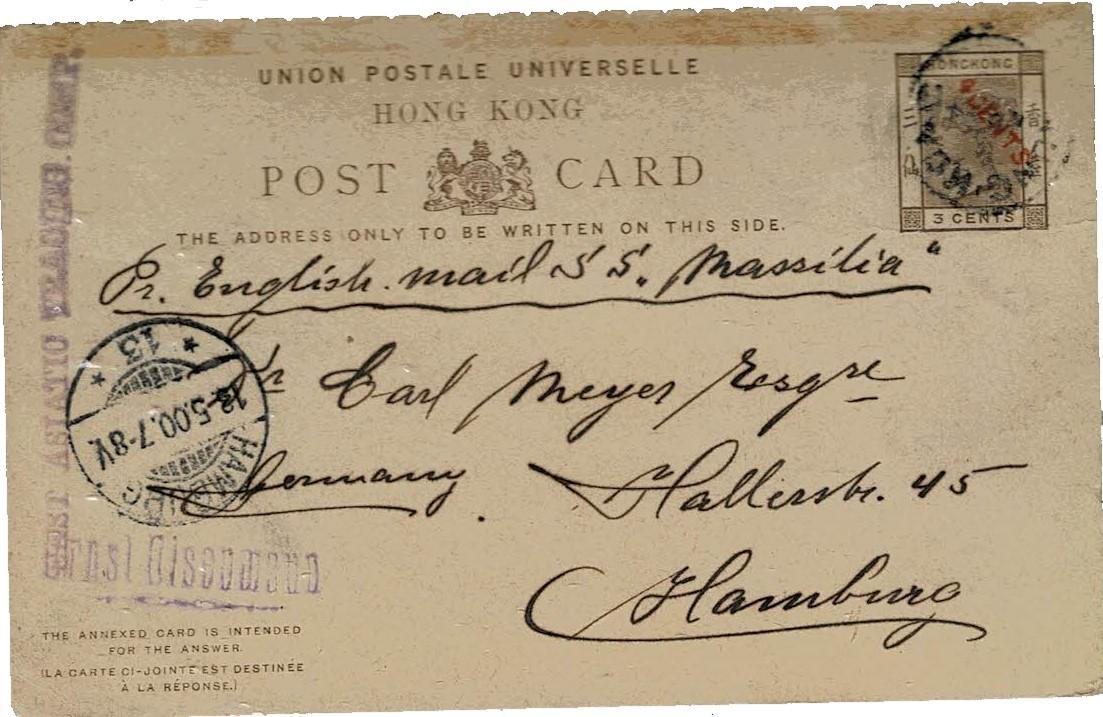 UNION POSTALE UNIVERSELLE
HONG KONG
POST CARD
THE ADDRESS ONLY TO BE WRITTEN ON THIS SIDE.
HONGKONG
CENTS
3 CENTS
Pr. English mail S S „Massilia"
Carl Meyer Esqre
Germany. Hallerstr. 45
Hamburg
13
13.5.00.7-8V.
HAMBURG
ASIATIC TRADING COMP.
Ernst
THE ANNEXED CARD IS INTENDED
FOR THE ANSWER.
(LA CARTE CI-JOINTE EST DESTINÉE
À LA RÉPONSE.)